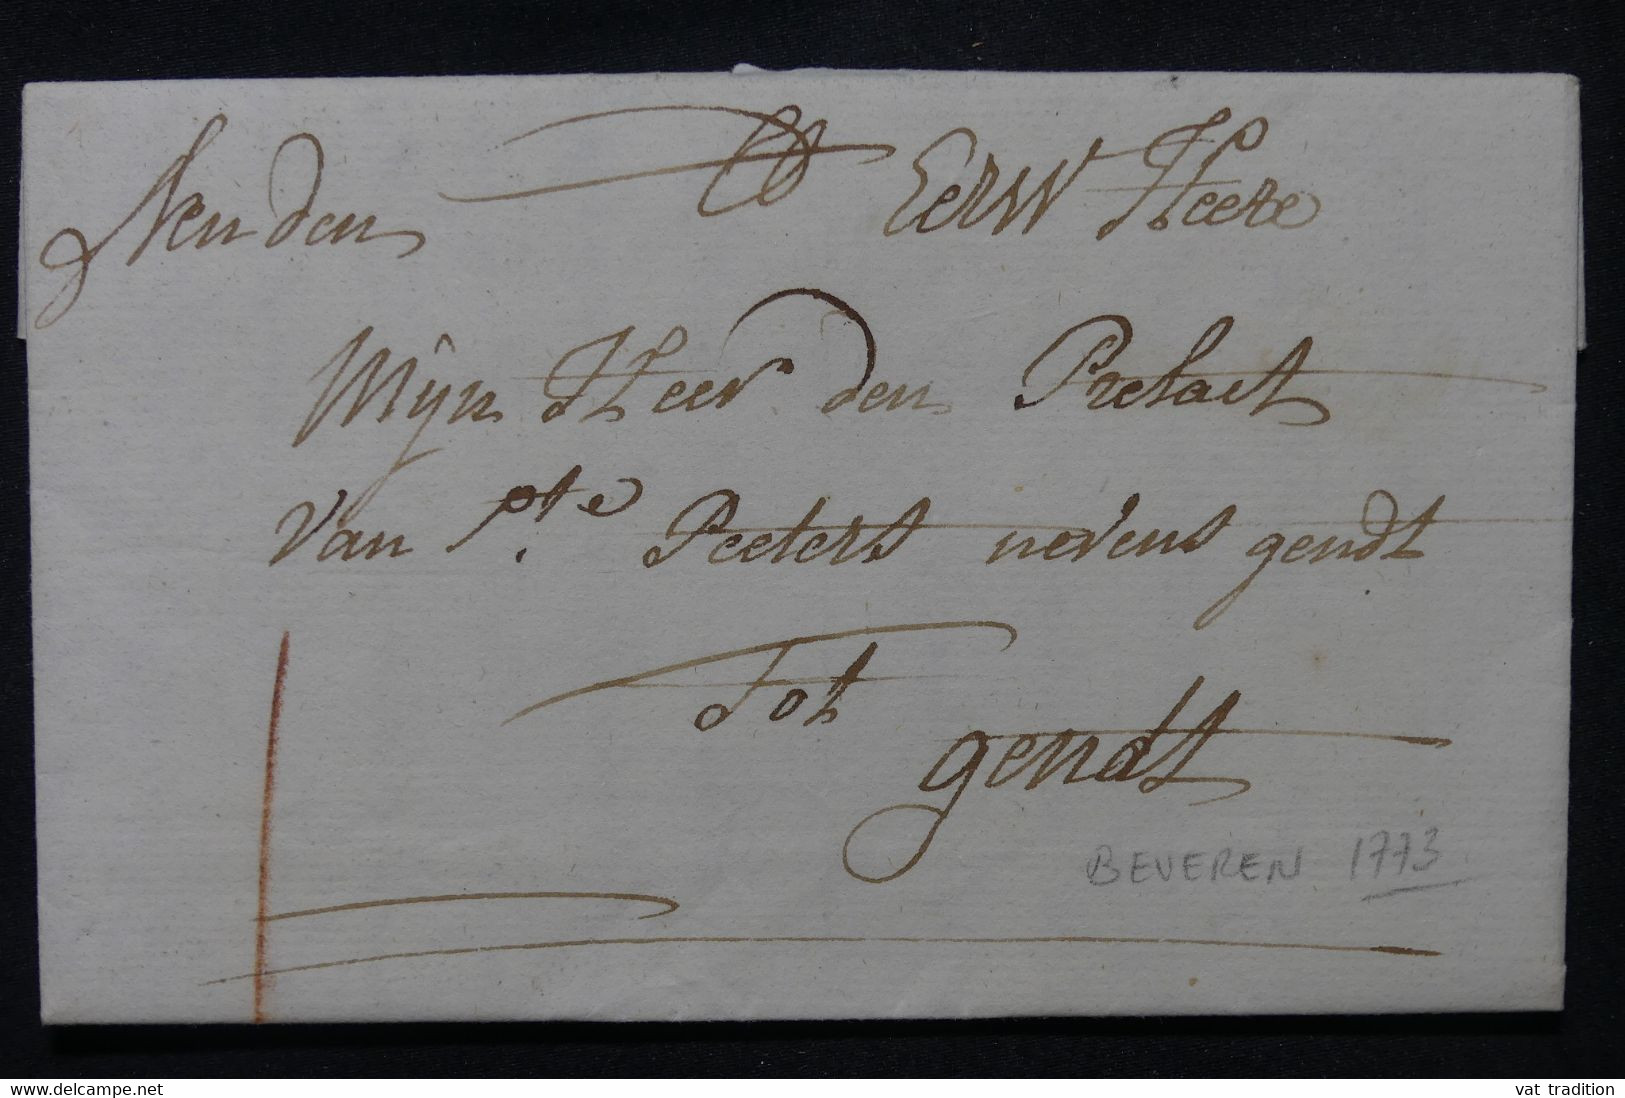 Aen den Eerw Heere
Mijn Heer den Prelaet
van Ste Peeters nevens gendt
tot
gendt
BEVEREN 1773
www.delcampe.net
vat_tradition